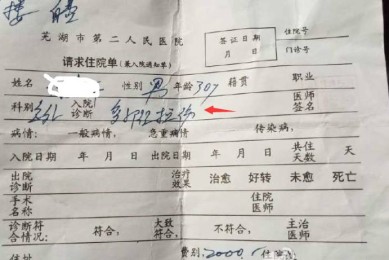 芜湖市第二人民医院
请求住院单(兼入院通知单)
签证日期
月 日
住院号
门诊号
姓名 性别 男 年龄 30岁 籍贯 职业
科别 入院诊断 医师签名
病情: 一般病情, 急重病情 传染病,
入院日期 年 月 日 出院日期 年 月 日 共住天数 天
出院诊断 治疗效果 治愈 好转 未愈 死亡
手术名称 住院医师
诊断符合情况: 符合, 大致符合, 不符合, 主治医师
住址 费别: 2000